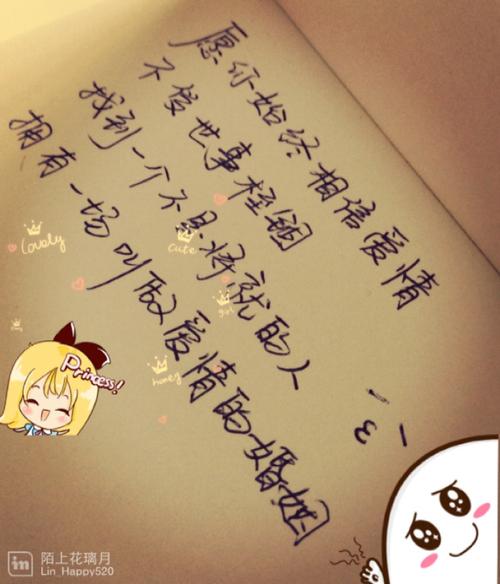 愿你始终相信爱情
不接世事桎锢
找到一个不是将就的人
拥有一场叫做爱情的婚姻
Lovely
cute
girl
honey
Princess!
in 陌上花璃月
Lin_Happy520